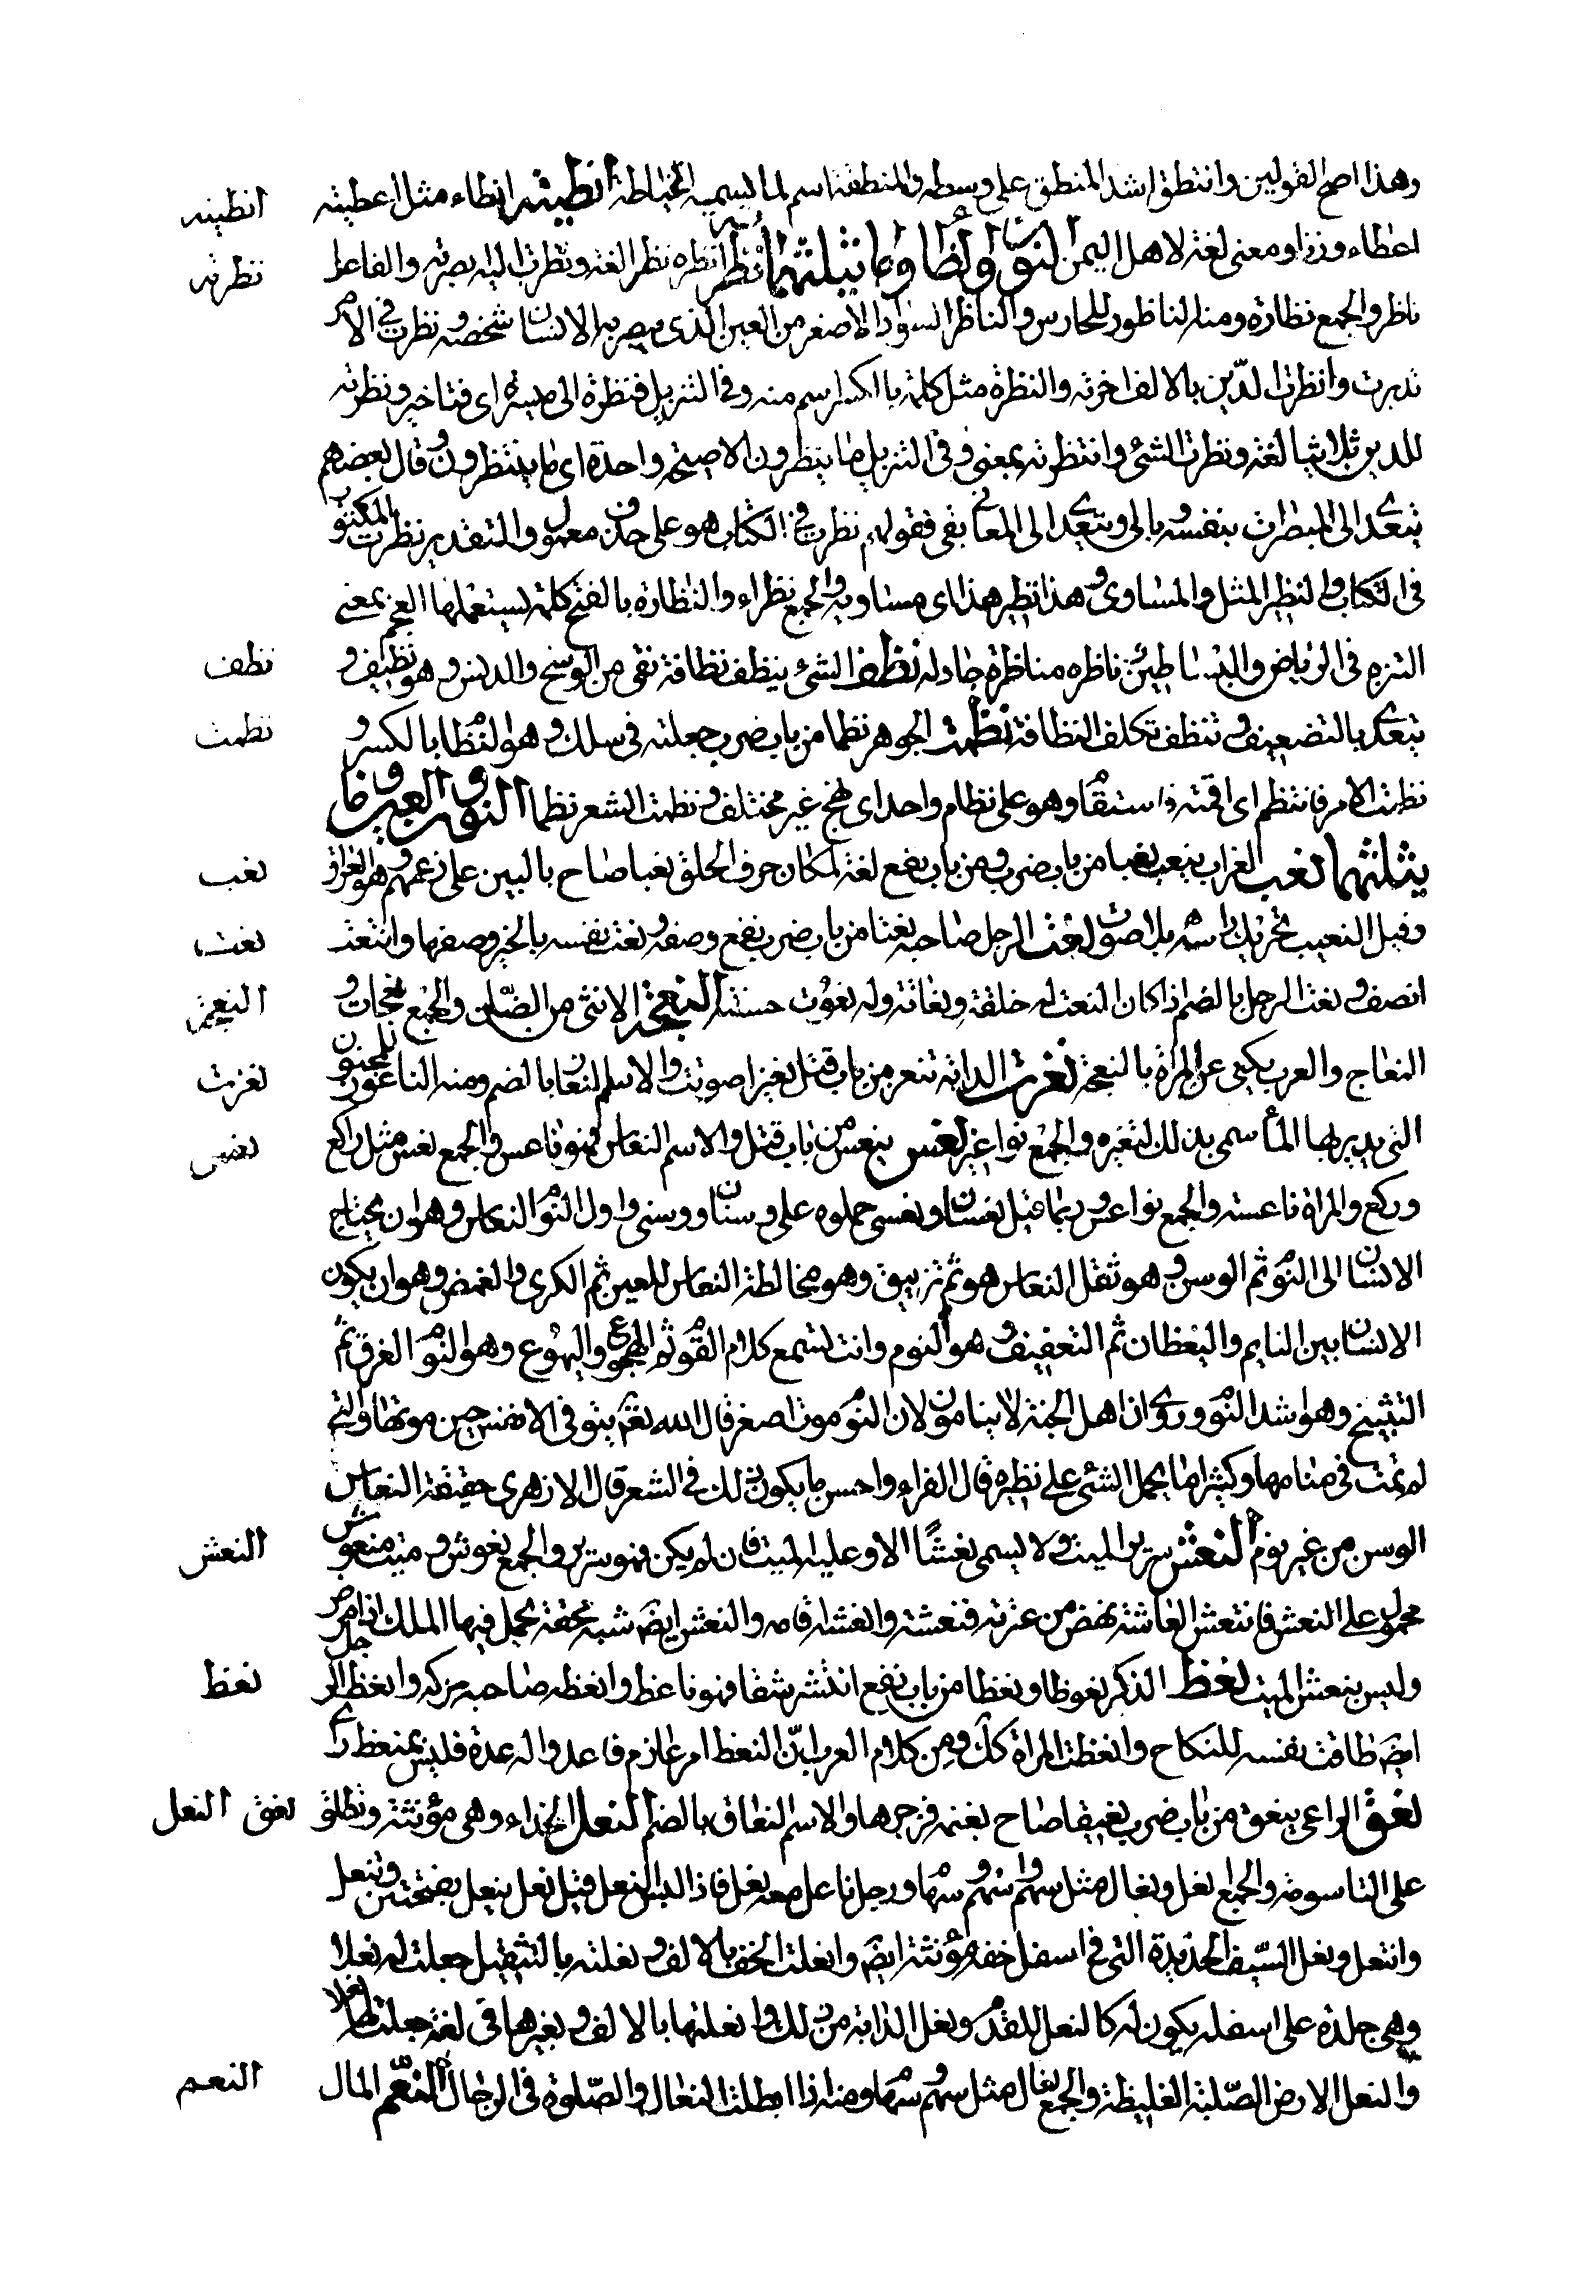 وهذا اصح القولين وانتطق شد المنطق على وسطه والمنطقة اسم لما يسميه الحياطة انطيته انطاء مثل اعطيته انطيته
اعطاء وزنا ومعنى لغة لاهل اليمن النون والظاء وما يثلثهما نظرته انظره نظرا لغة ونظرت اليه بصرته والفاعل نظرته
ناظر والجمع نظارة ومنه الناظور للحارس والناظر السواد الاصغر من العين الذى يبصر به الانسان شخصه ونظرت فى الامر
تدبرت وانظرت الدّين بالالف اخرته والنظرة مثل كلمة بالكسر اسم منه وفى التنزيل فنظرة الى ميسرة اى فتاخير ونظرته
الدين ثلاثيا لغة ونظرت الشئ وانتظرته بمعنى وفى التنزيل ما ينظرون الا صيحة واحدة اى ما ينتظرون وقال بعضهم
يتعدى الى المبصرات بنفسه وبالى ويتعدى الى المعانى بفى فقولهم نظرت فى الكتاب هو على حذف معمول والتقدير نظرت المكتوب
فى الكتاب والنظير المثل والمساوى وهذا نظير هذا اى مساويه والجمع نظراء والنظارة بالفتح كلمة يستعملها العجم بمعنى
التنزه فى الرياض والبساطين ناظره مناظرة جادله نظف الشئ ينظف نظافة نقى من الوسخ والدنس وهو نظيف و نظف
يتعدى بالتضعيف وتنظف تكلف النظافة نظمت الجوهر نظما من باب ضرب جعلته فى سلك وهو النظام بالكسر و نظمت
نظمت الامر فانتظم اى اقمته فاستقام وهو على نظام واحد اى نهج غير مختلف ونظمت الشعر نظما النون والعين وما
يثلثهما نعب الغراب ينعب نعبا من باب ضرب ومن باب نفع لغة لمكان حرف الحلق نعبا صاح بالبين على زعمهم وهو الفراق نعب
وقيل النعيب تحريك راسه بلا صوت نعت الرجل صاحبه نعتا من باب ضرب نفع وصفه ونعت نفسه بالخير وصفها وانتعت نعت
اتصف ونعت الرجل بالضم اذا كان النعت له خلقة ونعاتة وله نعوت حسنة النعجة الانثى من الضأن والجمع نعجات و النعجة
النعاج والعرب يكنى عن المراة بالنعجة نعرت الدابة تنعر من باب قتل نعيرا صوتت والاسم النعار بالضم ومنه الناعور للمجنون نعرت
التى يديرها الماء سمى بذلك لنعيره والجمع نواعير نعس ينعس من باب قتل والاسم النعاس فهو ناعس والجمع نعس مثل راكع نعس
وركع والمراة ناعسة والجمع نواعس وربما قيل نعسان ونعسى حملوه على وسنان ووسنى واول النوم النعاس وهو ان يحتاج
الانسان الى النوم ثم الوسن وهو ثقل النعاس هو ثم ترنيق وهو مخالطة النعاس للعين ثم الكرى والغمض وهو ان يكون
الانسان بين النايم واليقظان ثم التغفيف وهو النوم وانت تسمع كلام القوم ثم الهجوع والهبوع وهو النوم الغرق ثم
التسبيخ وهو اشد النوم وروى ان اهل الجنة لا ينامون لان النوم موت اصغر قال الله تعم يتوفى الانفس حين موتها والتى
لم تمت فى منامها وكثيرا ما يحمل الشئ على نظيره قال الفراء واحسن ما يكون ذلك فى الشعر قال الازهرى حقيقة النعاس
الوسن من غير نوم النعش سرير الميت ولا يسمى نعشًا الا وعليه الميت فان لم يكن فهو سرير والجمع نعوش وميت منعوش النعش
محمول على النعش فانتعش العاثر نهض من عثرته فنعشته وانعشه اقامه والنعش ايضا شبه محفة يحمل فيها الملك اذا مرض
وليس بنعش الميت نعظ الذكر نعوظا ونعظا من باب نفع انتشر شقا فهو ناعظ وانعظه صاحبه حركه وانعظ الرجل نعظ
ايضا تاقت نفسه للنكاح وانعظت المراة كك ومن كلام العرب انّ النعظ امر عازم فاعدوا له عدة فليس بمنعظ راى
نعق الراعى ينعق من باب ضرب نعيقا صاح بغنمه فزجرها والاسم النعاق بالضم النعل الحذاء وهى مؤنثة وتطلق نعق النعل
على التاسومة والجمع انعل ونعال مثل سهم واسهم وسهام ورجل ناعل معه نعل فاذا لبس النعل قيل نعل ينعل بفتحتين وتنعل
وانتعل ونعل السيف الحديدة التى فى اسفل جفنه مؤنثة ايضا وانعلت الخف بالالف ونعلته بالتثقيل جعلت له نعلا
وهى جلدة على اسفله يكون له كالنعل للقدم ونعل الدابة من ذلك وانعلتها بالالف وبغيرها فى لغة جعلت لها نعلا
والنعل الارض الصّلبة الغليظة والجمع نعال مثل سهم وسهام ومنه اذا ابتلت النعال والصّلوة فى الرحال النعم المال النعم